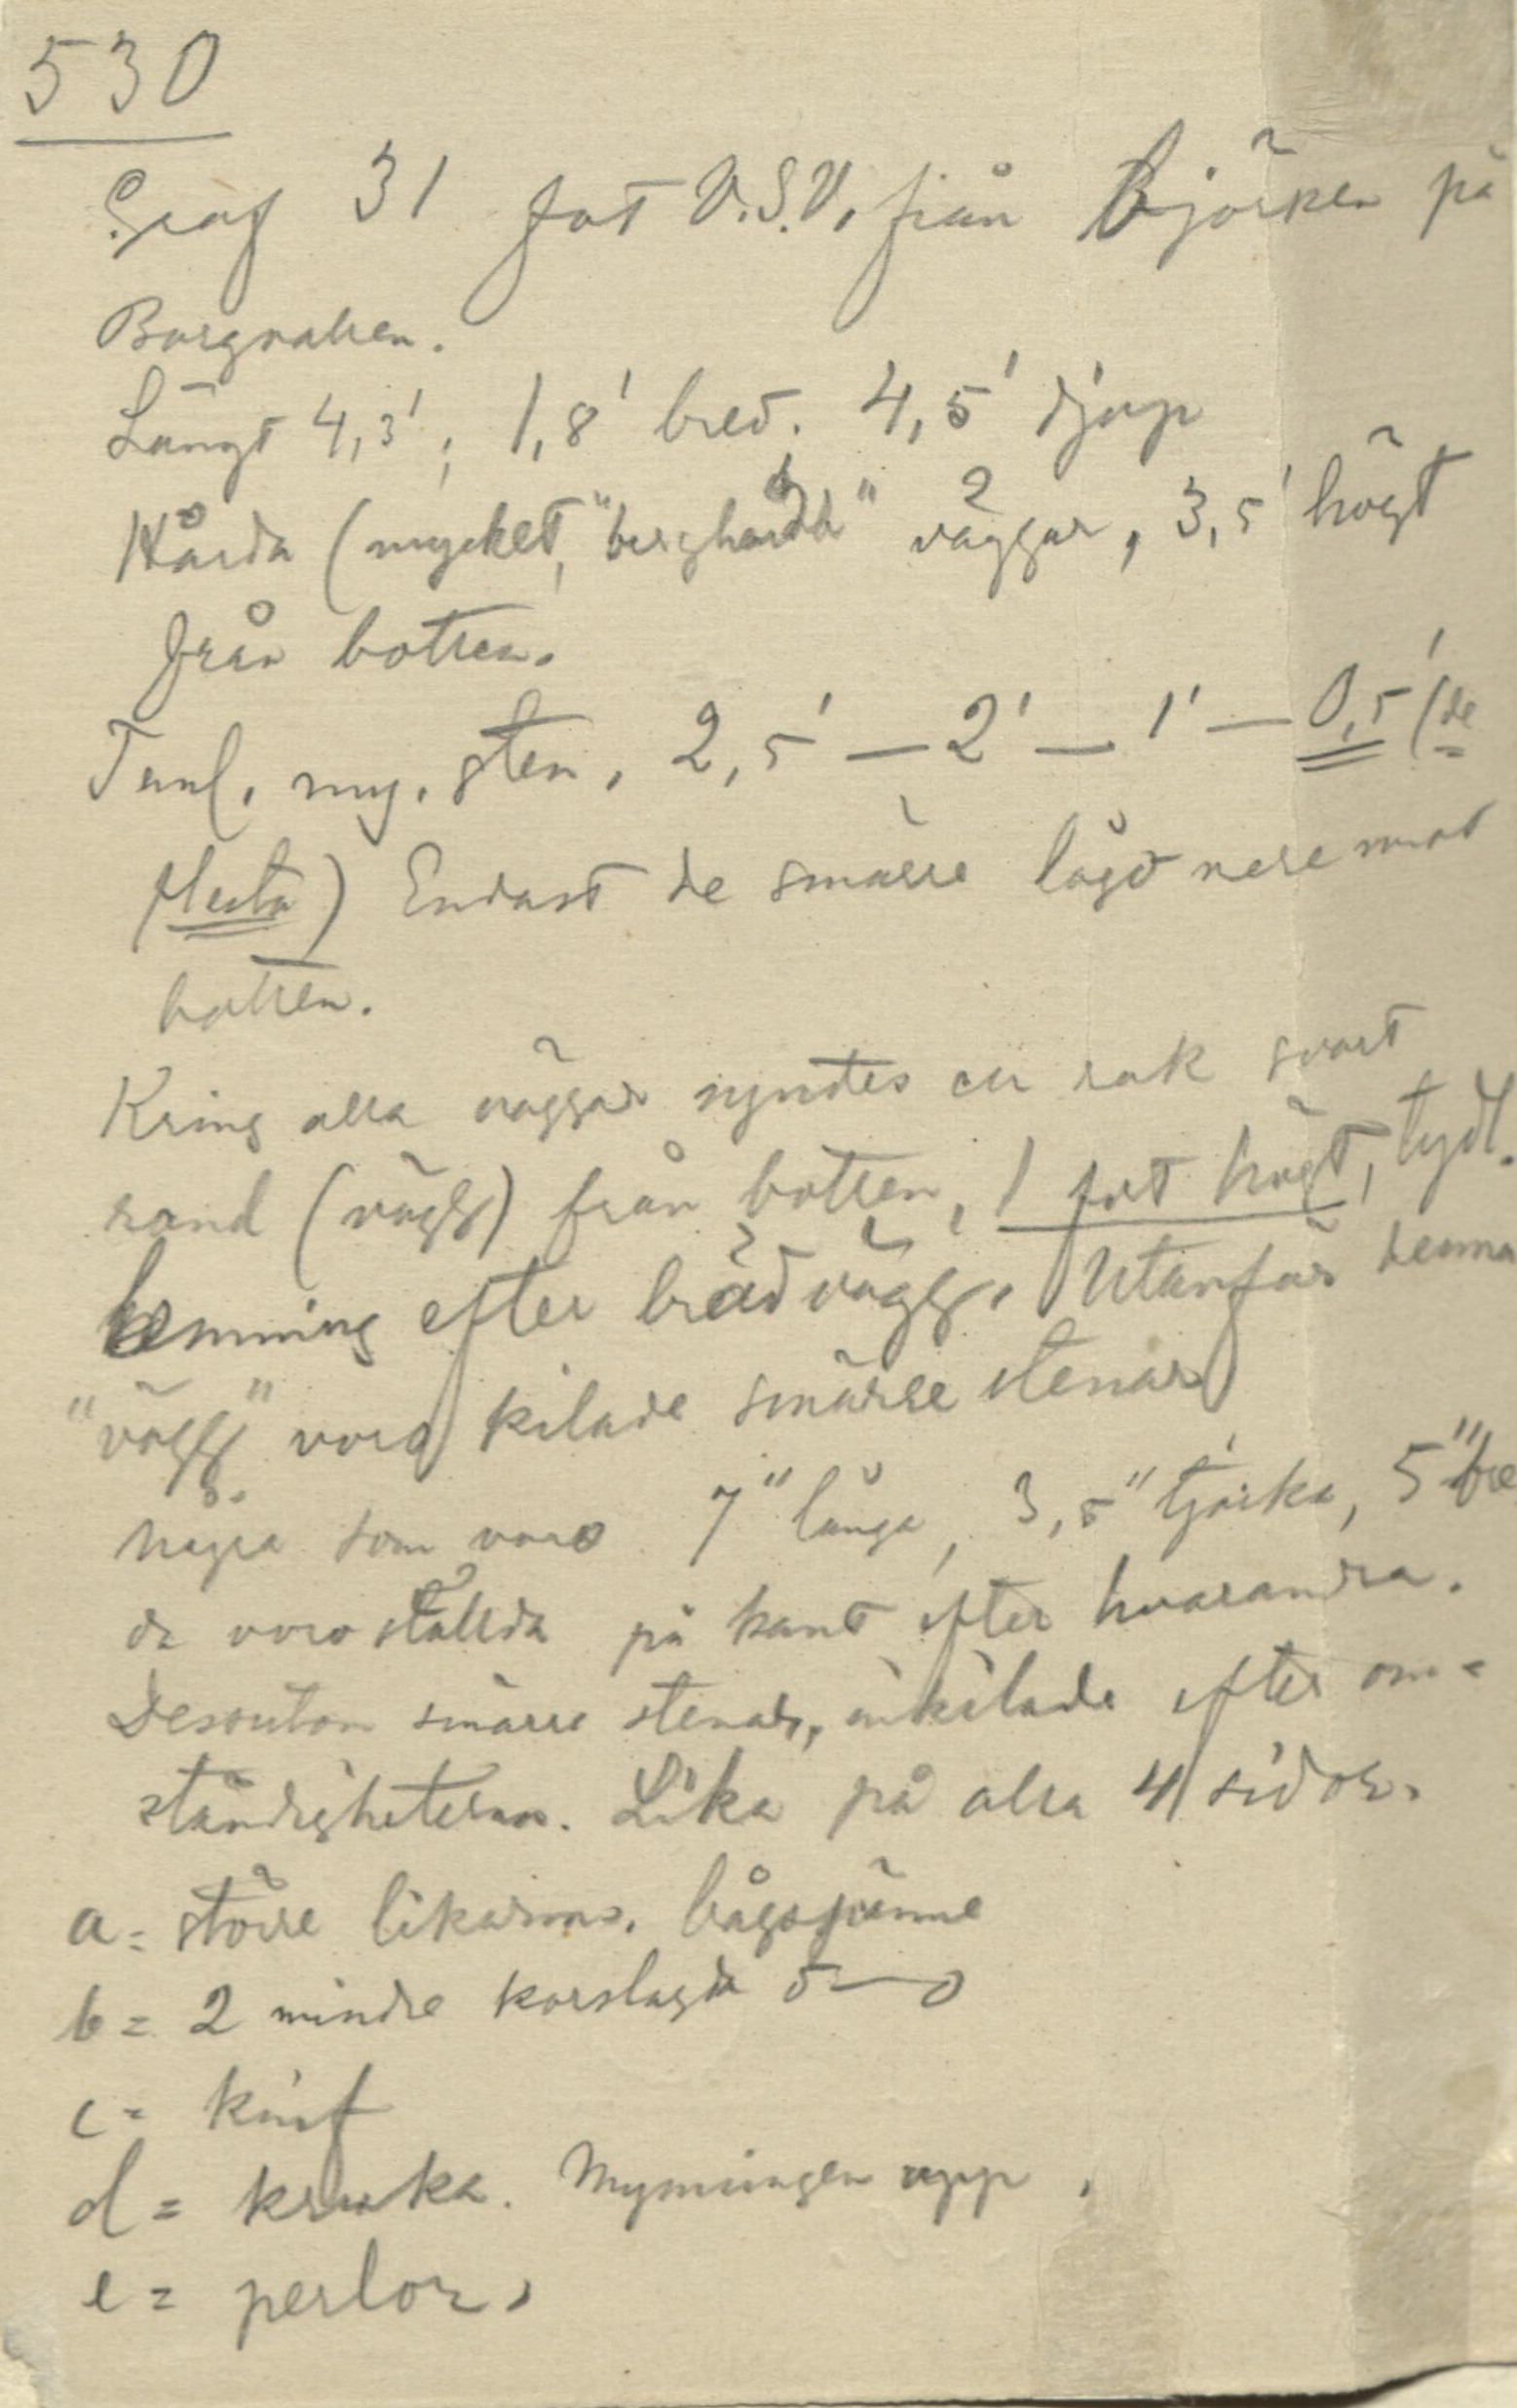 530
Graf 31 fot V.S.V. från Björken på
Borgvallen.
Längd 4,3', 1,8' bred. 4,5' djup
Hårda (mycket, "berghårda" väggar, 3,5' högt
från botten.
my. sten, 2,5' — 2' — 1' — 0,5' (de
flesta) Endast de smärre lågo nere mot
botten.
Kring alla väggar syntes en rak svart
rand (vägg) från botten, 1 fot högt, tydl.
lemning efter brädvägg. Utanför denna
"vägg" voro kilade smärre stenar
några som voro 7" långa, 3,5" tjocka, 5" bre
da voro stälda på kant efter hvarandra.
Dessutom smärre stenar, inkilade efter om=
ständigheterna. Lika på alla 4 sidor.
a= större likarms. bågspänne
b= 2 mindre korslagda o—o
c= knif
d= kruka. Mynningen upp.
e= perlor.